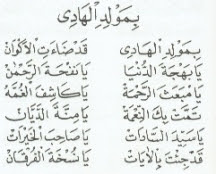 بِمَوْلِدِ الْهَادِى
بِمَوْلِدِ الْهَادِى قَدْ ضَاءَتِ الْأَكْوَانْ
يَا بَهْجَةَ الدُّنْيَا يَا نَفْحَةَ الرَّحْمٰنْ
يَا مَبْعَثَ الرَّحْمَةْ يَا كَاشِفَ الْغُمَّهْ
تَمَّتْ بِكَ النِّعْمَةْ يَا مِنَّةَ الدَّيَّانْ
يَا سَيِّدَ السَّادَاتْ يَا صَاحِبَ الْخَيْرَاتْ
قَدْ جِئْتَ بِالْآيَاتْ يَا نُسْخَةَ الْفُرْقَانْ